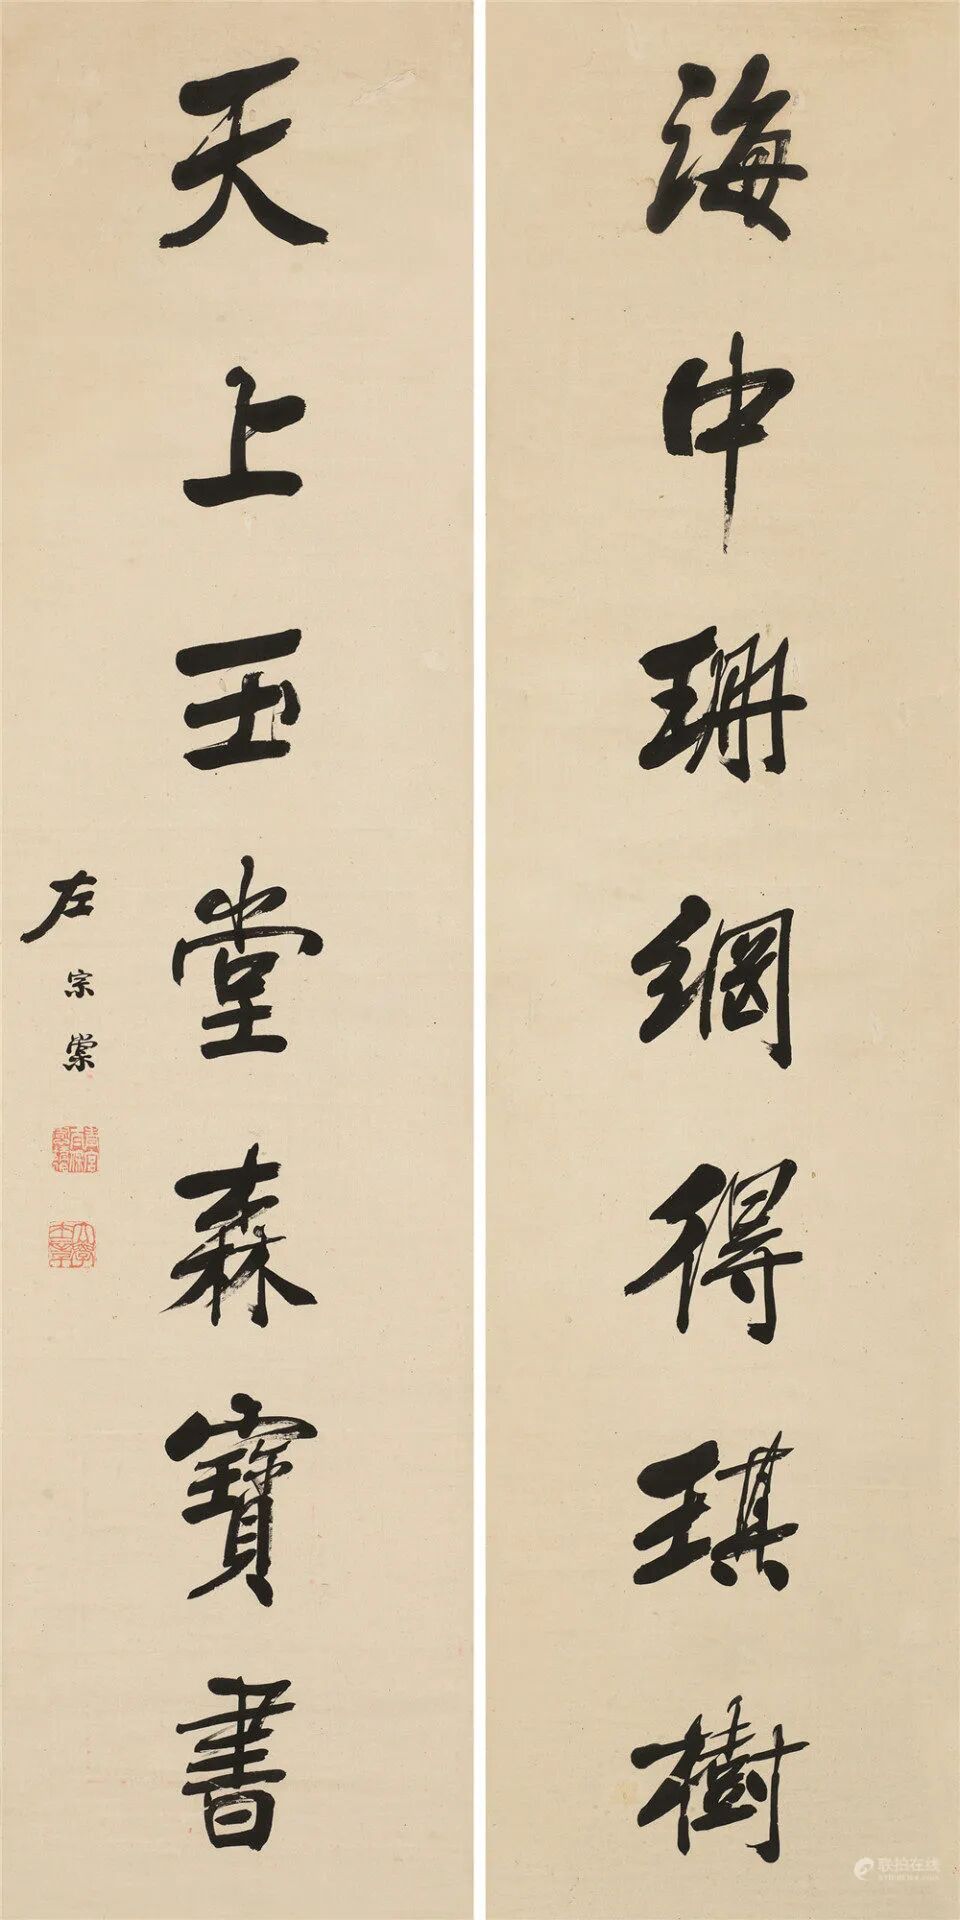 海中珊網得琪樹
天上玉堂森寶書
左宗棠
大學士章
联拍在线